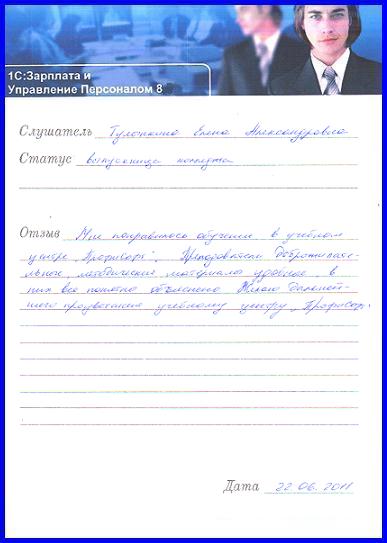 1С:Зарплата и
Управление Персоналом 8
Слушатель Елена Александровна
Статус выпускница колледжа
Отзыв Мне понравилось обучение в учебном
центре „Профисофт". Преподаватели доброжелате-
льные, методические материалы удобные, в
них все понятно объяснено. Желаю дальней-
шего процветания учебному центру „Профисофт".
Дата 22.06.2011